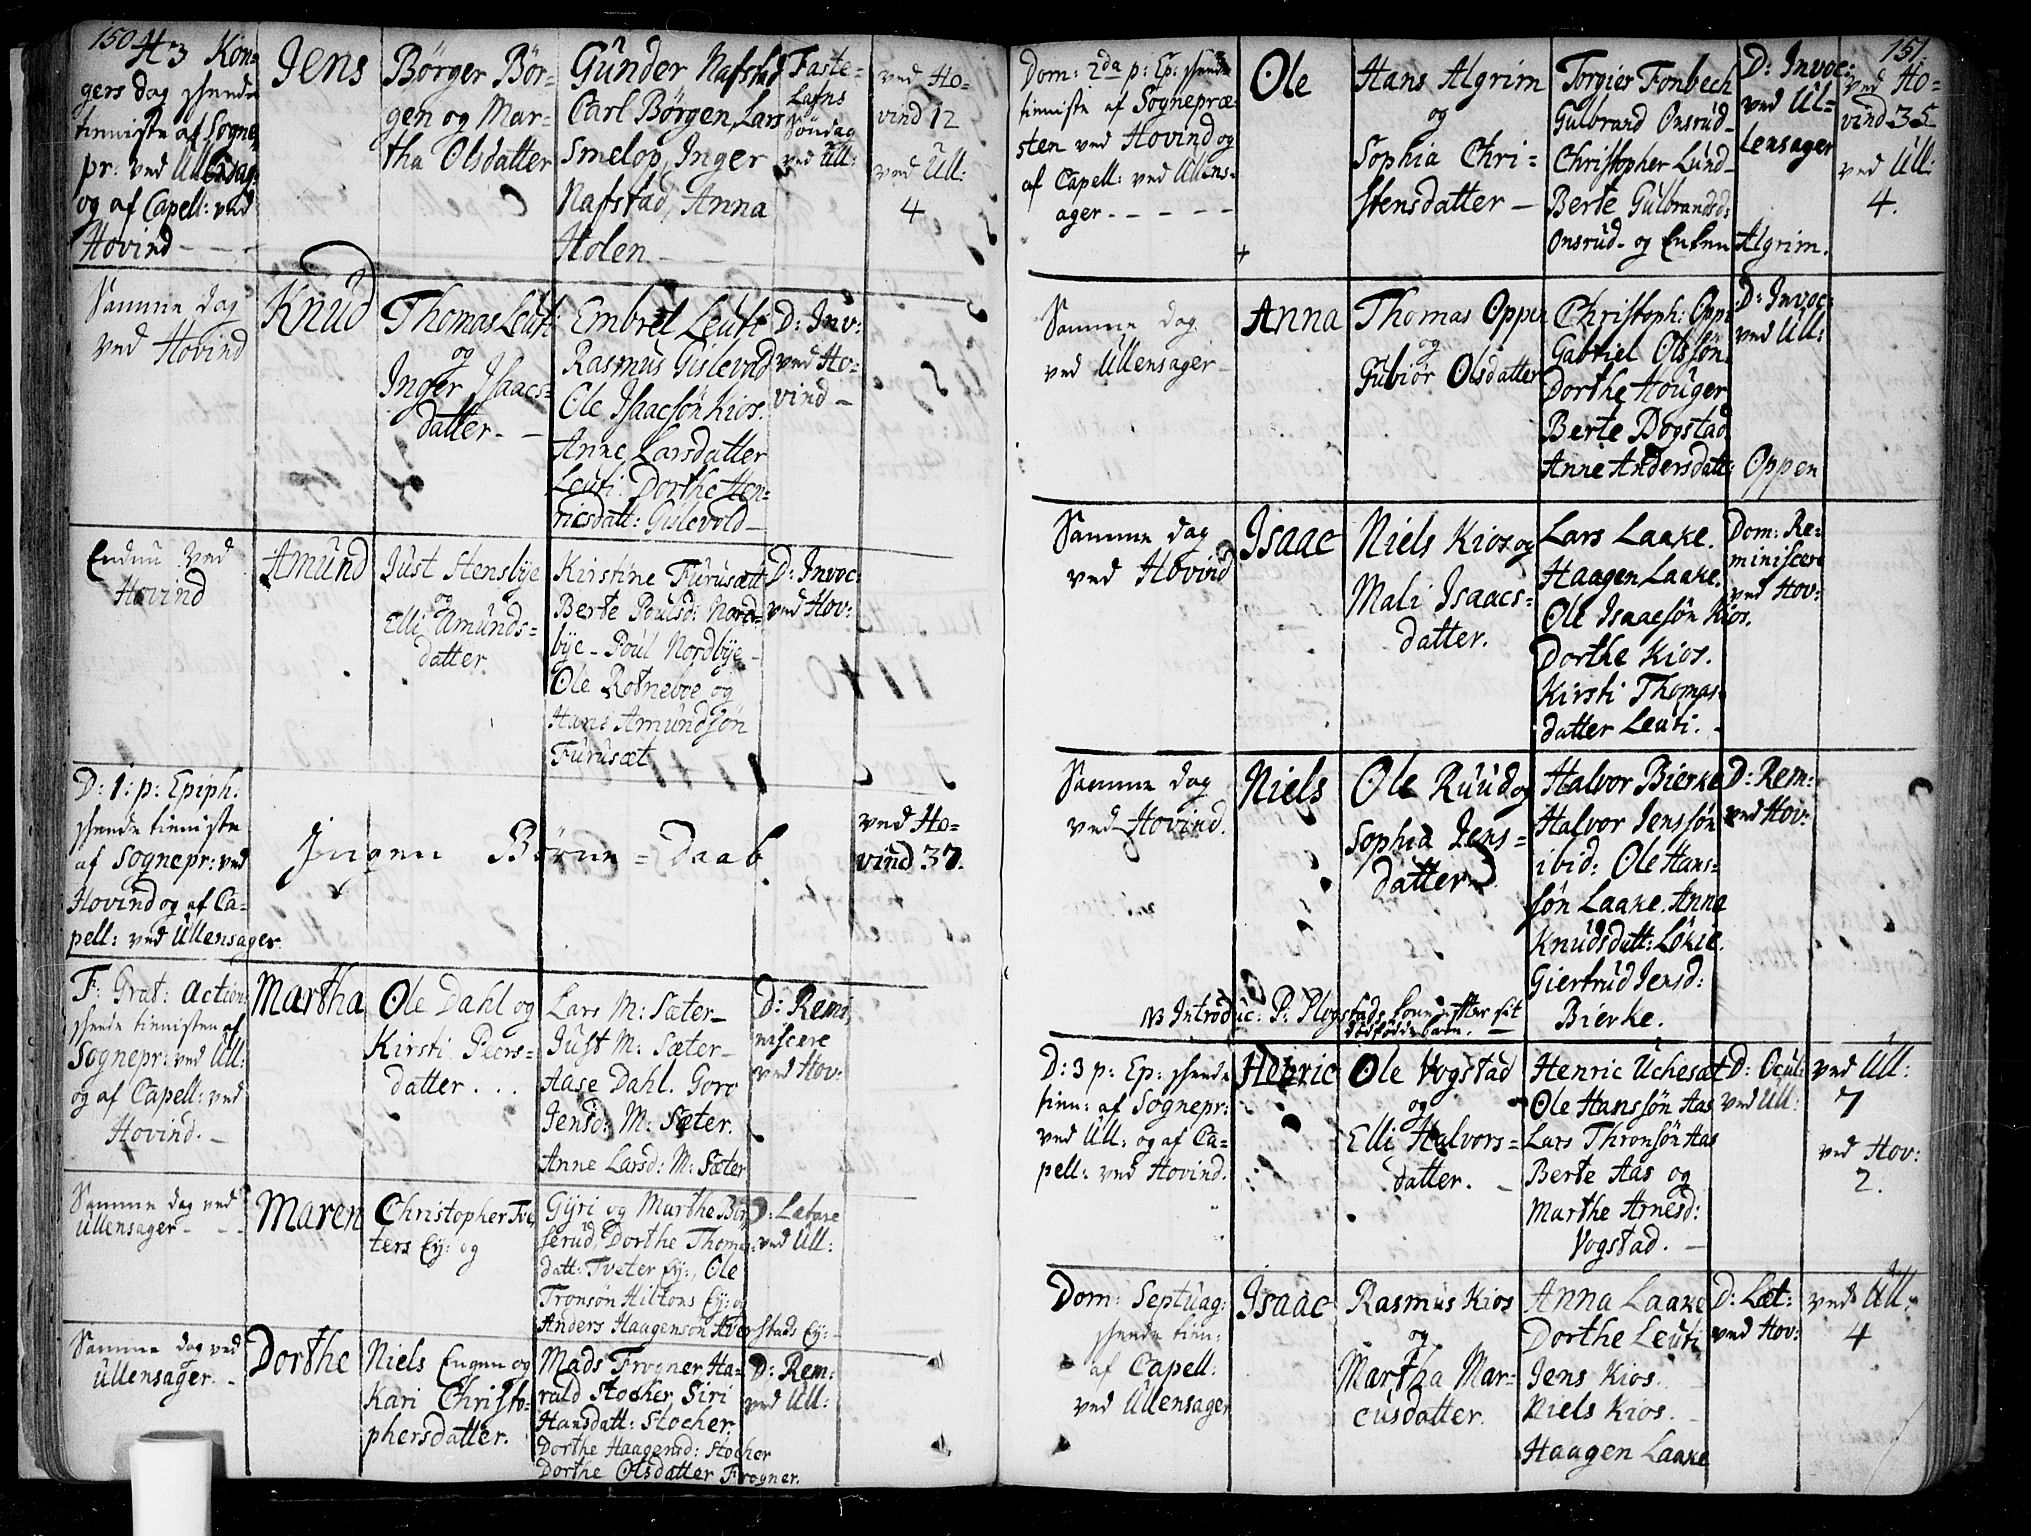 150
H 3 Kon-
gers dag skeede
tieniste af Sogne
pr: ved Ullensag:
og af Capell: ved
Hovind
Jens
Børger Bør-
gen og Mar-
tha Olsdatter
Gunder Nafstad
Carl Børgen, Lars
Smelop, Inger
Nafstad, Anna
Holen
Faste-
Lafns
Søndag
ved Ull:
ved Ho-
vind 12
ved Ull:
4
Samme dag
ved Hovind
Knud
Thomas Leuti
og
Inger Isaacs-
datter
Embret Leuti
Rasmus Gislevold
Ole Isaacsøn Kios.
Anne Larsdatter
Leuti. Dorthe Hen-
ricsdatt: Gislevold
D: Inv:
ved Ho-
vind
Endnu ved
Hovind
Amund
Just Stensbye
og
Elli Amunds-
datter
Kirstine Furusæt
Berte Poulsd: Nord-
bye - Poul Nordbye
Ole Rotneboe og
Hans Amundsøn
Furusæt
D: Invoc:
ved Hov:
D: 1: p: Epiph.
skeede tieniste
af Sognepr: ved
Hovind og af Ca-
pell: ved Ullensager
Ingen Børne-Daab
ved Ho-
vind 37.
F: Grat: action:
skeede tienisten af
Sognepr: ved Ull:
og af Capell: ved
Hovind.
Martha
Ole Dahl og
Kirsti Peers-
datter
Lars M: Sæter
Just M: Sæter
Aase Dahl. Goro
Jensd: M: Sæter.
Anne Larsd: M: Sæter
D: Remi-
niscere
ved Hov:
Samme dag ved
Ullensager
Maren
Christopher Tve-
ters Ey: og
Gyri og Marthe Bør-
serud, Dorthe Thomas-
datt: Tveter Ey:, Ole
Tronsøn Hiltons Ey: og
Anders Haagensøn Averstads Ey:
D: Lætare
ved Ull:
Samme dag ved
Ullensager
Dorthe
Niels Engen og
Kari Christo-
phersdatter.
Mads Frogner, Ha-
rald Stocker, Siri
Hansdatt: Stocker,
Dorthe Haagensd: Stocker
Dorthe Olsdatter Frogner.
D: Rem:
ved Ull:
151
Dom: 2da p: Ep: skeede
tieniste af Sognepræ-
sten ved Hovind og
af Capell: ved Ullens-
ager
Ole
Hans Algrim
og
Sophia Chri-
stensdatter
Torgier Fonbech
Gulbrand Onsrud
Christopher Lund
Berte Gulbrandsd:
Onsrud og Enken Algrim.
D: Invoc:
ved Ul-
lensager
ved Ho-
vind 35
ved Ull:
4.
Samme dag
ved Ullensager
Anna
Thomas Oppen
og
Gubiør Olsdatter
Christoph: Oppen
Gabriel Olssøn
Dorthe Houger
Berte Dogstad
Anne Andersdatt: Oppen
D: Invoc:
ved Ull:
Samme dag
ved Hovind
Isaac
Niels Kios og
Mali Isaacs-
datter.
Lars Laake.
Haagen Laake.
Ole Isaacsøn Kios.
Dorthe Kios.
Kirsti Thomas-
datter Leuti.
Dom: Re-
miniscere
ved Hov:
Samme dag
ved Hovind.
Niels
Ole Ruud og
Sophia Jens-
datter
Halvor Bierke
Halvor Jenssøn
ibid: Ole Hans-
søn Laake. Anne
Knudsdatt: Løkie.
Giertrud Jensd:
Bierke.
D: Rem:
ved Hov:
NB Introduc: P: Plogstads Kone efter sit
dødfødde barn.
D: 3 p: Ep: skeede
tien: af Sognepr:
ved Ull: og af Ca-
pell: ved Hovind.
Henric
Ole Vogstad
og
Elli Halvors-
datter.
Henric Uchesæt
Ole Hanssøn Aas
Lars Thronsøn Aas
Berte Aas og
Marthe Arnesd:
Vogstad.
D: Ocul:
ved Ull:
ved Ull:
7
ved Hov:
2.
Dom: Septuag:
skeede tien:
af Capell:
ved Ullensager
Isaac
Rasmus Kios
og
Martha Mar-
cusdatter.
Anna Laake
Dorthe Leuti
Jens Kios.
Niels Kios.
Haagen Laake
D: Læt:
ved Hov:
ved Ull:
4